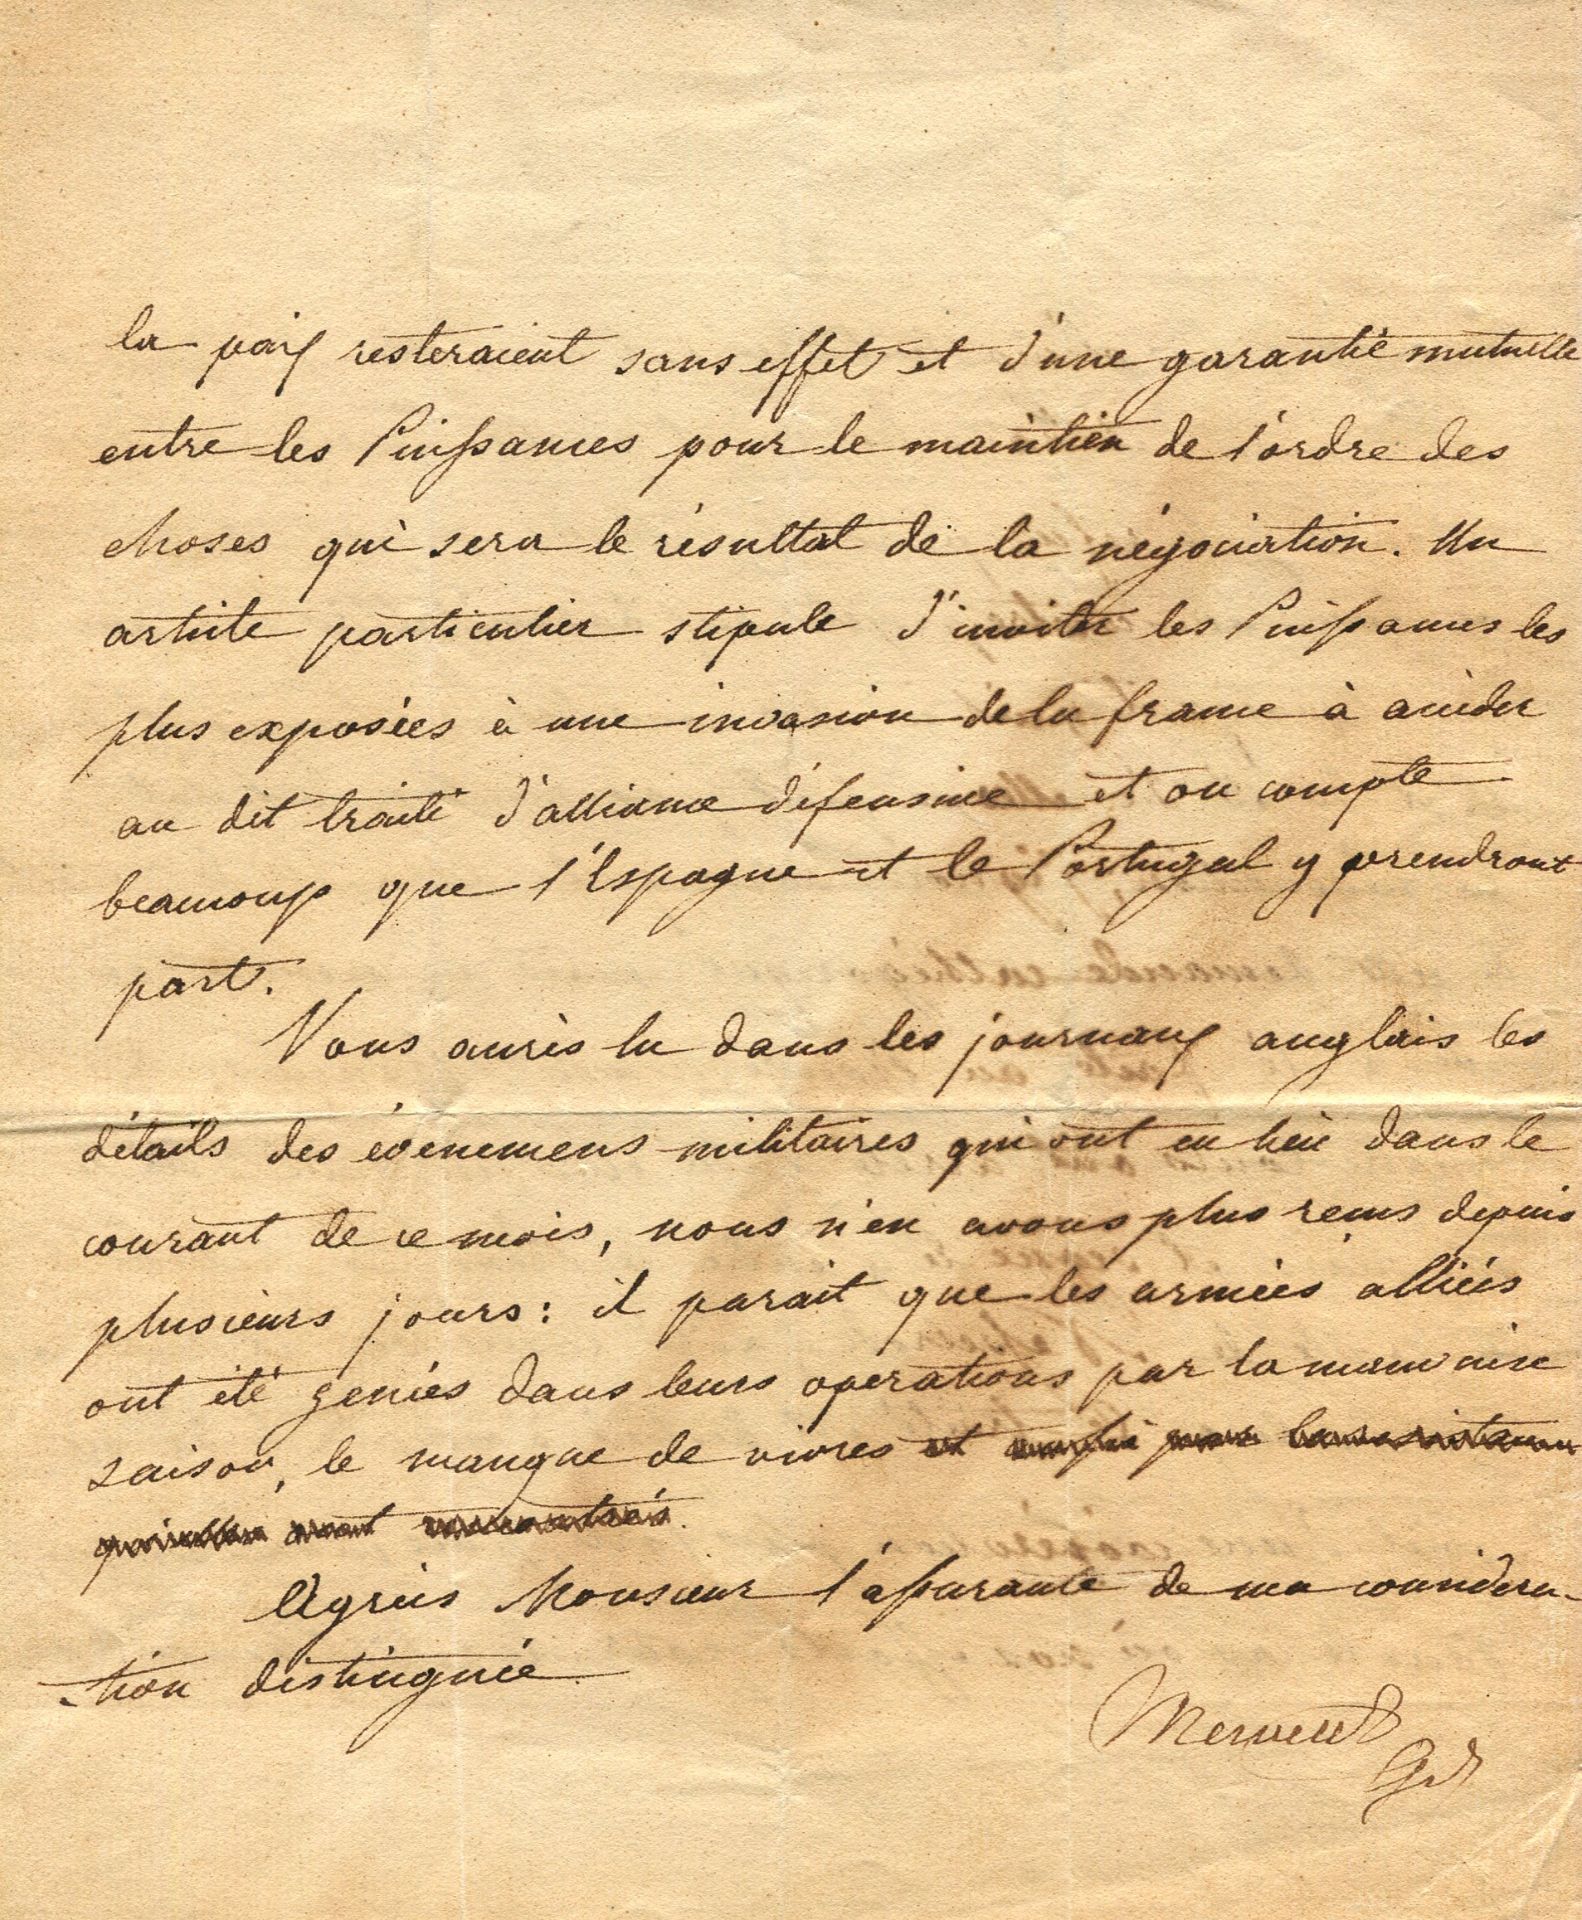 la paix resteraient sans effet et d'une garantie mutuelle
entre les Puissances pour le maintien de l'ordre des
choses qui sera le résultat de la négociation. Un
article particulier stipule d'inviter les Puissances les
plus exposées à une invasion de la france à accéder
au dit traité d'alliance défensive et on compte
beaucoup que l'Espagne et le Portugal y prendront
part.
Vous aurès lu dans les journaux anglais les
détails des évenemens militaires qui ont eu lieu dans le
courant de ce mois, nous n'en avons plus recus depuis
plusieurs jours: il parait que les armées alliées
ont été genées dans leurs operations par la mauvaise
saison, le manque de vivres et
Agrées Monsieur l'assurance de ma considera-
-tion distinguée